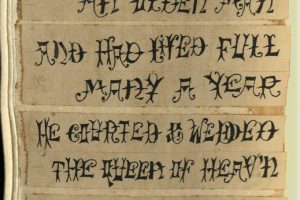 AN OLDEN MAN
AND HAD LIVED FULL
MANY A YEAR
HE COURTED & WEDDED
THE QUEEN OF HEAV'N